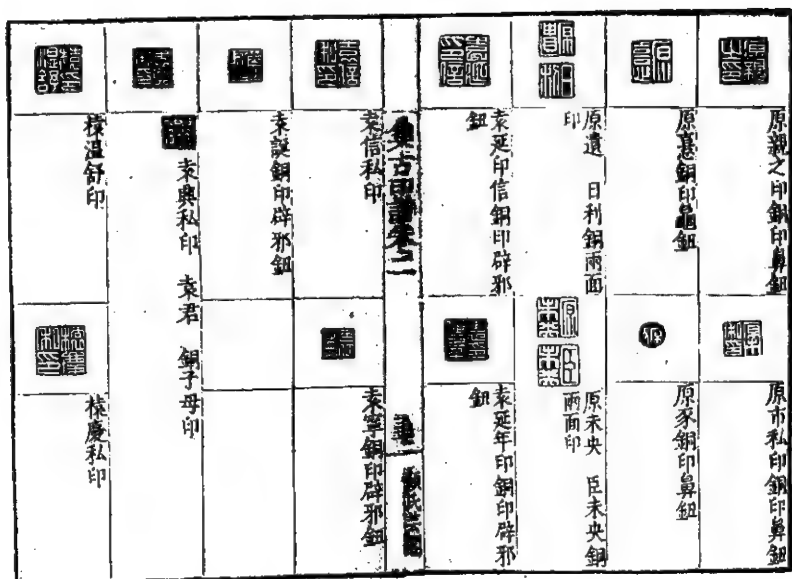 原親之印銅印鼻鈕
原市私印銅印鼻鈕
原憙銅印龜鈕
原豕銅印鼻鈕
原遺　日利銅兩面
印
原未央　臣未央銅
兩面印
袁延印信銅印辟邪
鈕
袁延年印銅印辟邪
鈕
集古印譜卷二
顧氏
袁信私印
袁寧銅印辟邪鈕
袁誕銅印辟邪鈕
袁興私印　袁君　銅子母印
榬溫舒印
榬慶私印